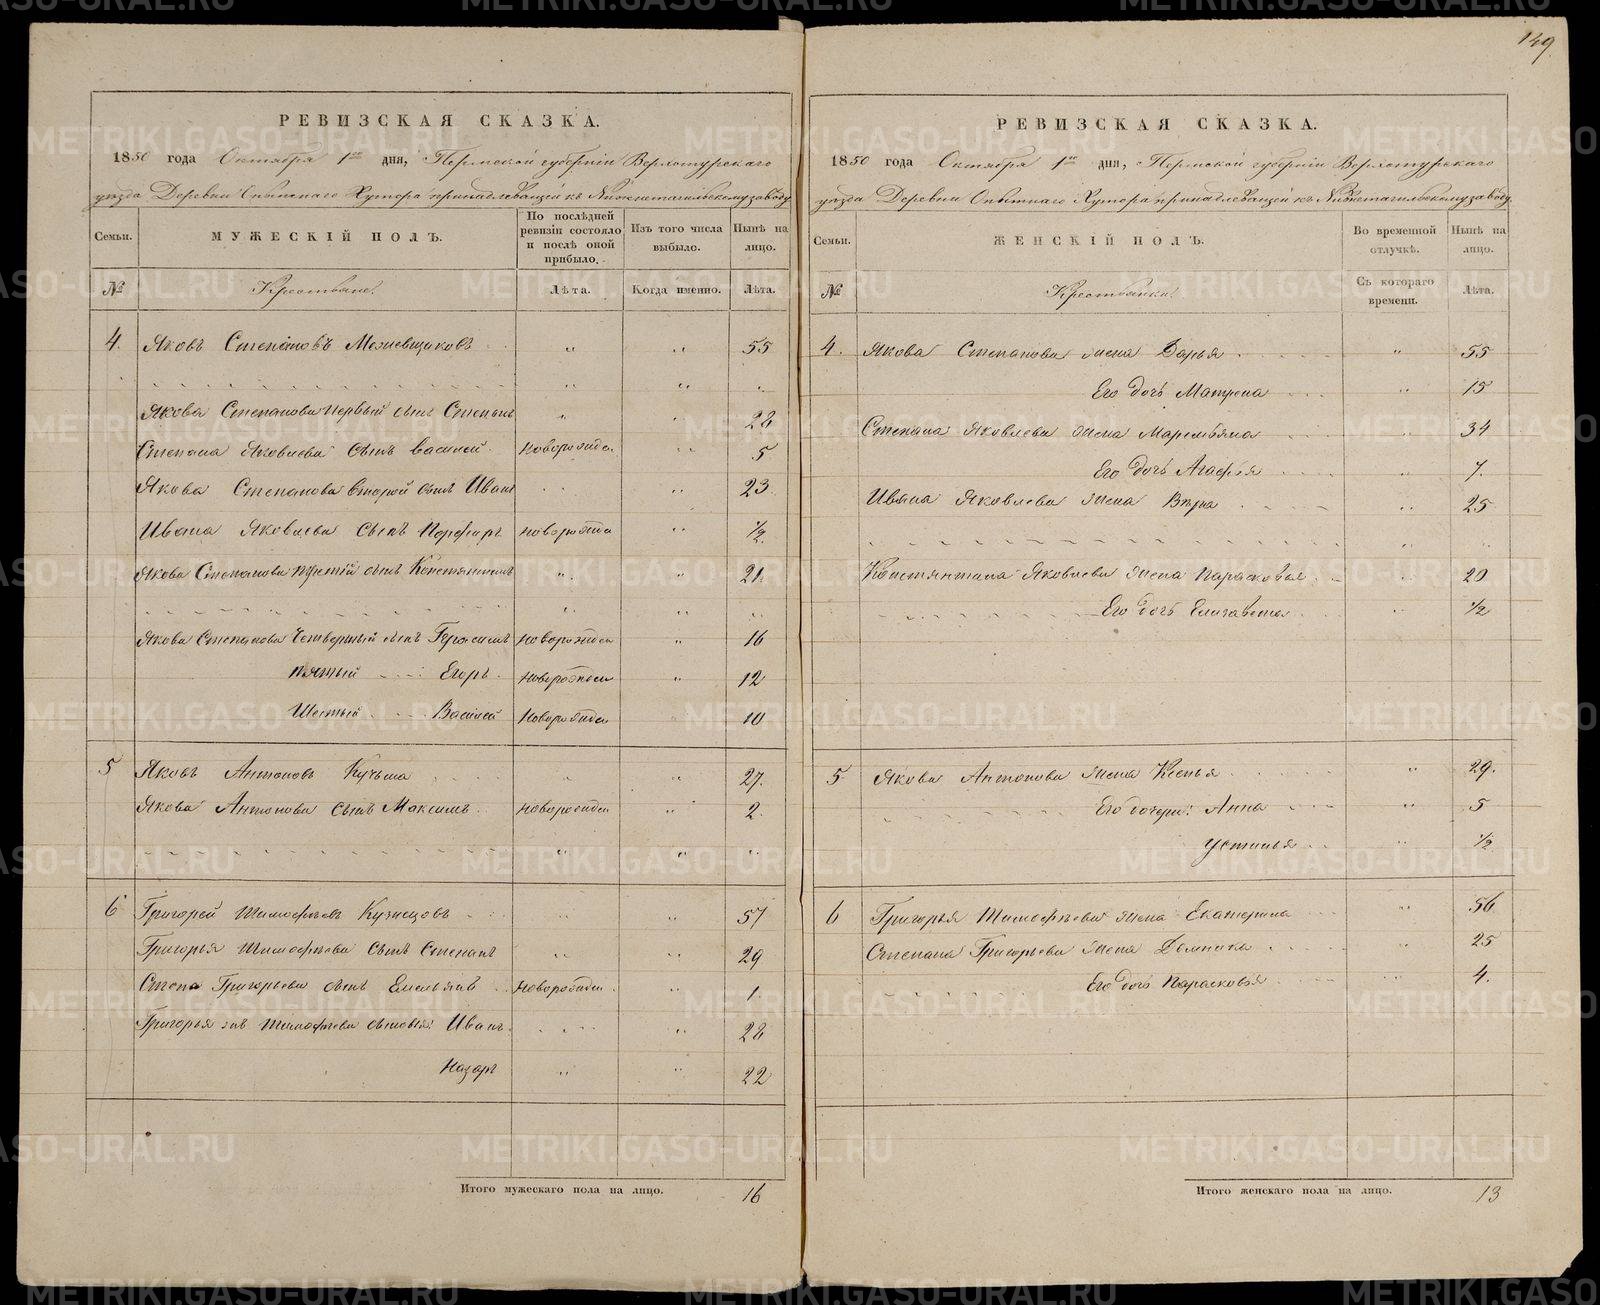 149
РЕВИЗСКАЯ СКАЗКА.
1850 года Октября 1го дня, Пермской губерніи Верхотурскаго
уѣзда Деревни Опытнаго Хутора принадлежащей къ Нижнетагильскому заводу
Семьи.
МУЖЕСКІЙ ПОЛЪ.
По послѣдней ревизіи состояло и послѣ оной прибыло.
Изъ того числа выбыло.
Нынѣ на лицо.
№
Крестьяне.
Лѣта.
Когда именно.
Лѣта.
4. Яковъ Степановъ 55
Якова Степанова первый сынъ Степанъ 28
Степана Яковлева сынъ Василей Новорожден 5
Якова Степанова второй сынъ Иванъ 23
Ивана Яковлева сынъ Порфиръ новорожден 1/2
Якова Степанова третій сынъ Констянтинъ 21
Якова Степанова четвертый сынъ Герасимъ Новорожден 16
пятый Егоръ Новорожден 12
Шестый Василей Новорожден 10
5 Яковъ Антоновъ Кучьма 27.
Якова Антонова сынъ Максимъ Новорожден 2
6 Григорей Тимофѣевъ Кузнецовъ 57
Григорья Тимофѣева сынъ Степанъ 29
Степа Григорьева сынъ Емельянъ Новорожден 1.
Григорья Тимофѣева сыновья: Иванъ 28
Назаръ 22
Итого мужескаго пола на лицо. 16
РЕВИЗСКАЯ СКАЗКА.
1850 года Октября 1го дня, Пермской губерніи Верхотурскаго
уѣзда Деревни Опытнаго Хутора принадлежащей къ Нижнетагильскому заводу
Семьи.
ЖЕНСКІЙ ПОЛЪ.
Во временной отлучкѣ.
Нынѣ на лицо.
№
Крестьянки.
Съ котораго времени.
Лѣта.
4. Якова Степанова жена Дарья 55
Его дочь Матрена 15
Степана Яковлева жена Маремьяна 34
Его дочь Агафья 7.
Ивана Яковлева жена Вѣра 25
Констянтина Яковлева жена Парасковья 20
Его дочь Елизавета 1/2
5 Якова Антонова жена Ксенья 29.
Его дочери: Анна 5
Устинья 1/2
6 Григорья Тимофѣева жена Екатерина 56
Степана Григорьева жена Домника 25
Его дочь Парасковья 4.
Итого женскаго пола на лицо. 13
METRIKI.GASO-URAL.RU